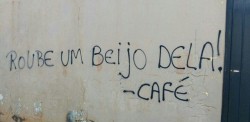 ROUBE UM BEIJO DELA!
-CAFÉ